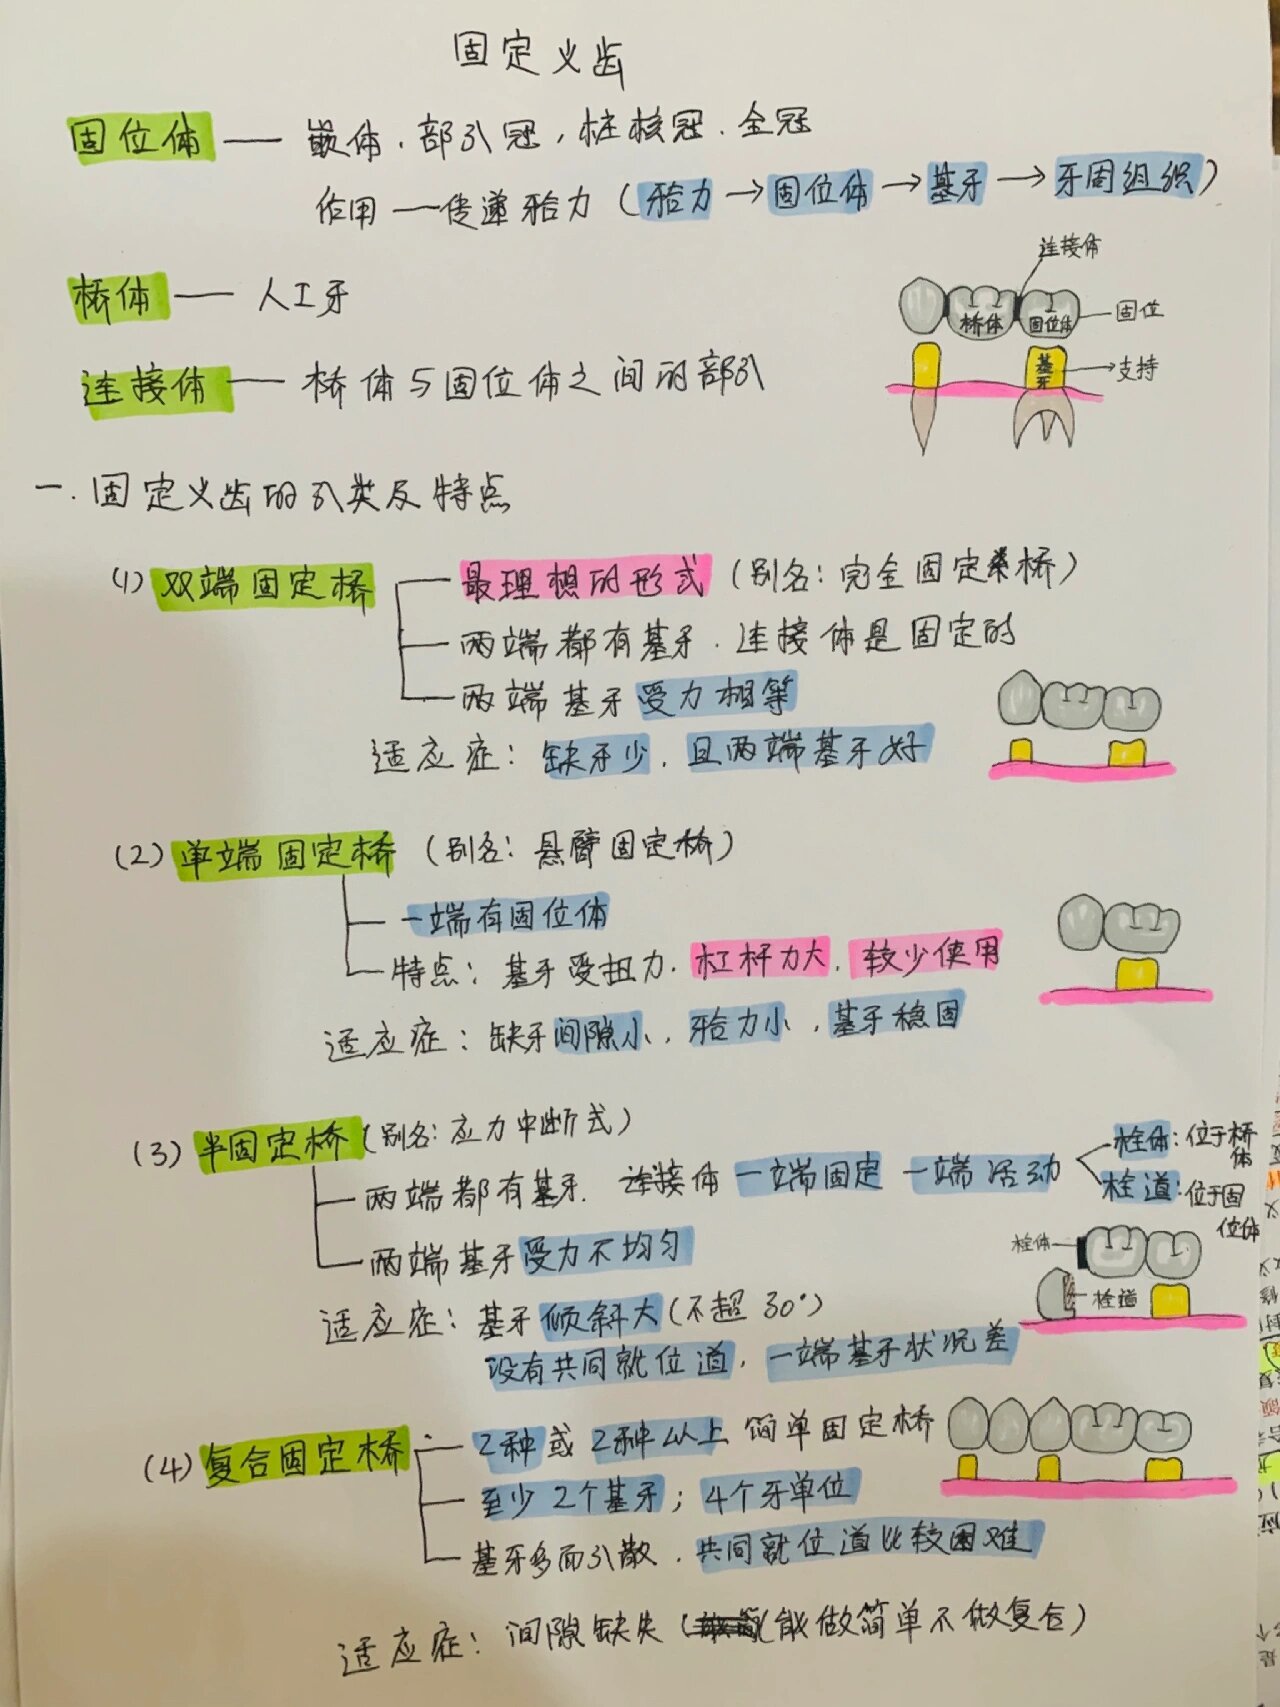 固定义齿
固位体 — 嵌体、部分冠,桩核冠.全冠
作用 — 传递𬌗力(𬌗力→固位体→基牙→牙周组织)
桥体 — 人工牙
连接体
桥体
固位体
固位
基牙
支持
连接体 — 桥体与固位体之间的部分
一.固定义齿的分类及特点
(1)双端固定桥
最理想的形式(别名:完全固定桥)
两端都有基牙.连接体是固定的
两端基牙受力相等
适应症:缺牙少,且两端基牙好
(2)单端固定桥(别名:悬臂固定桥)
一端有固位体
特点:基牙受扭力.杠杆力大,较少使用
适应症:缺牙间隙小,𬌗力小,基牙稳固
(3)半固定桥(别名:应力中断式)
两端都有基牙.连接体一端固定 一端活动
栓体:位于桥体
栓道:位于固位体
两端基牙受力不均匀
栓体
栓道
适应症:基牙倾斜大(不超30°)
没有共同就位道,一端基牙状况差
(4)复合固定桥
2种或2种以上简单固定桥
至少2个基牙;4个牙单位
基牙多而分散.共同就位道比较困难
适应症:间隙缺失(能做简单不做复合)